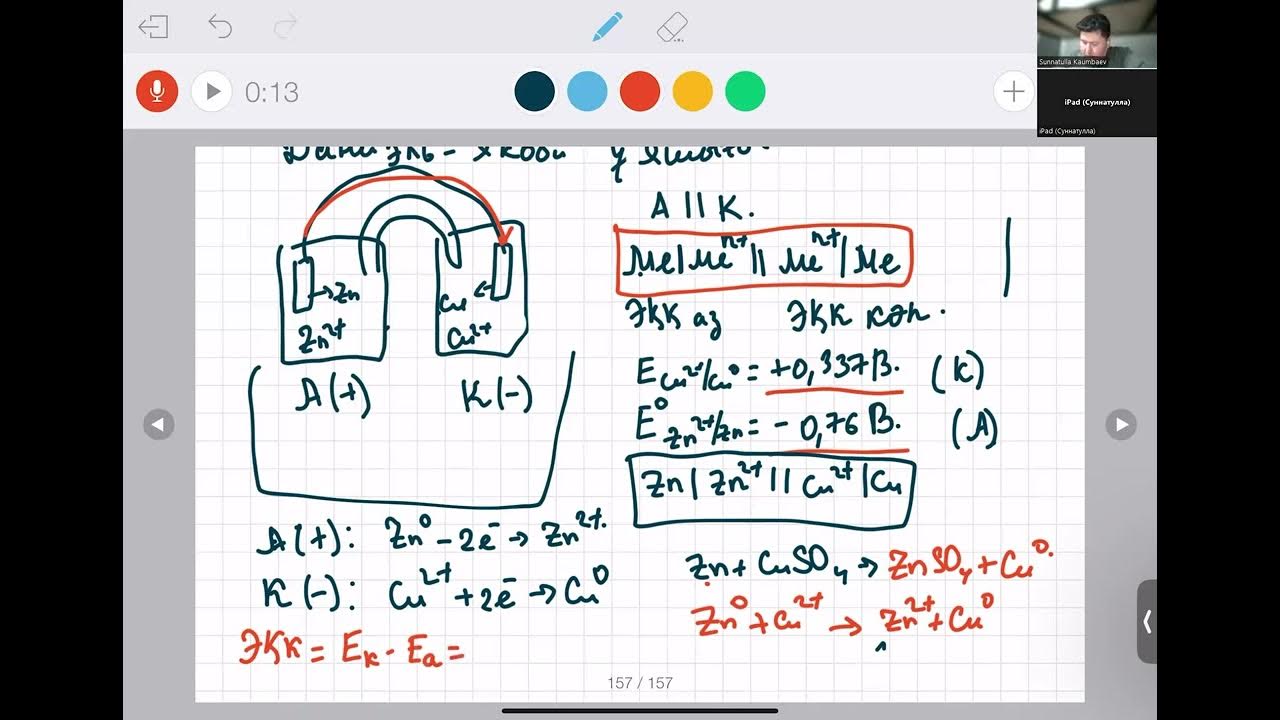 0:13
Sunnatulla Kaumbaev
iPad (Суннатулла)
iPad (Суннатулла)
A || K.
Me|Meⁿ⁺ || Meⁿ⁺|Me
ЭҚК аз ЭҚК кэп.
→Zn
Zn²⁺
Cu ←
Cu²⁺
A (+) K (-)
E Cu²⁺/Cu⁰ = +0,337 В. (K)
E⁰ Zn²⁺/Zn = - 0,76 В. (A)
Zn | Zn²⁺ || Cu²⁺ | Cu
A (+): Zn⁰ - 2e⁻ → Zn²⁺.
K (-): Cu²⁺ + 2e⁻ → Cu⁰
ЭҚК = Eₖ - Eₐ =
Zn + CuSO₄ → ZnSO₄ + Cu⁰.
Zn⁰ + Cu²⁺ → Zn²⁺ + Cu⁰
157 / 157